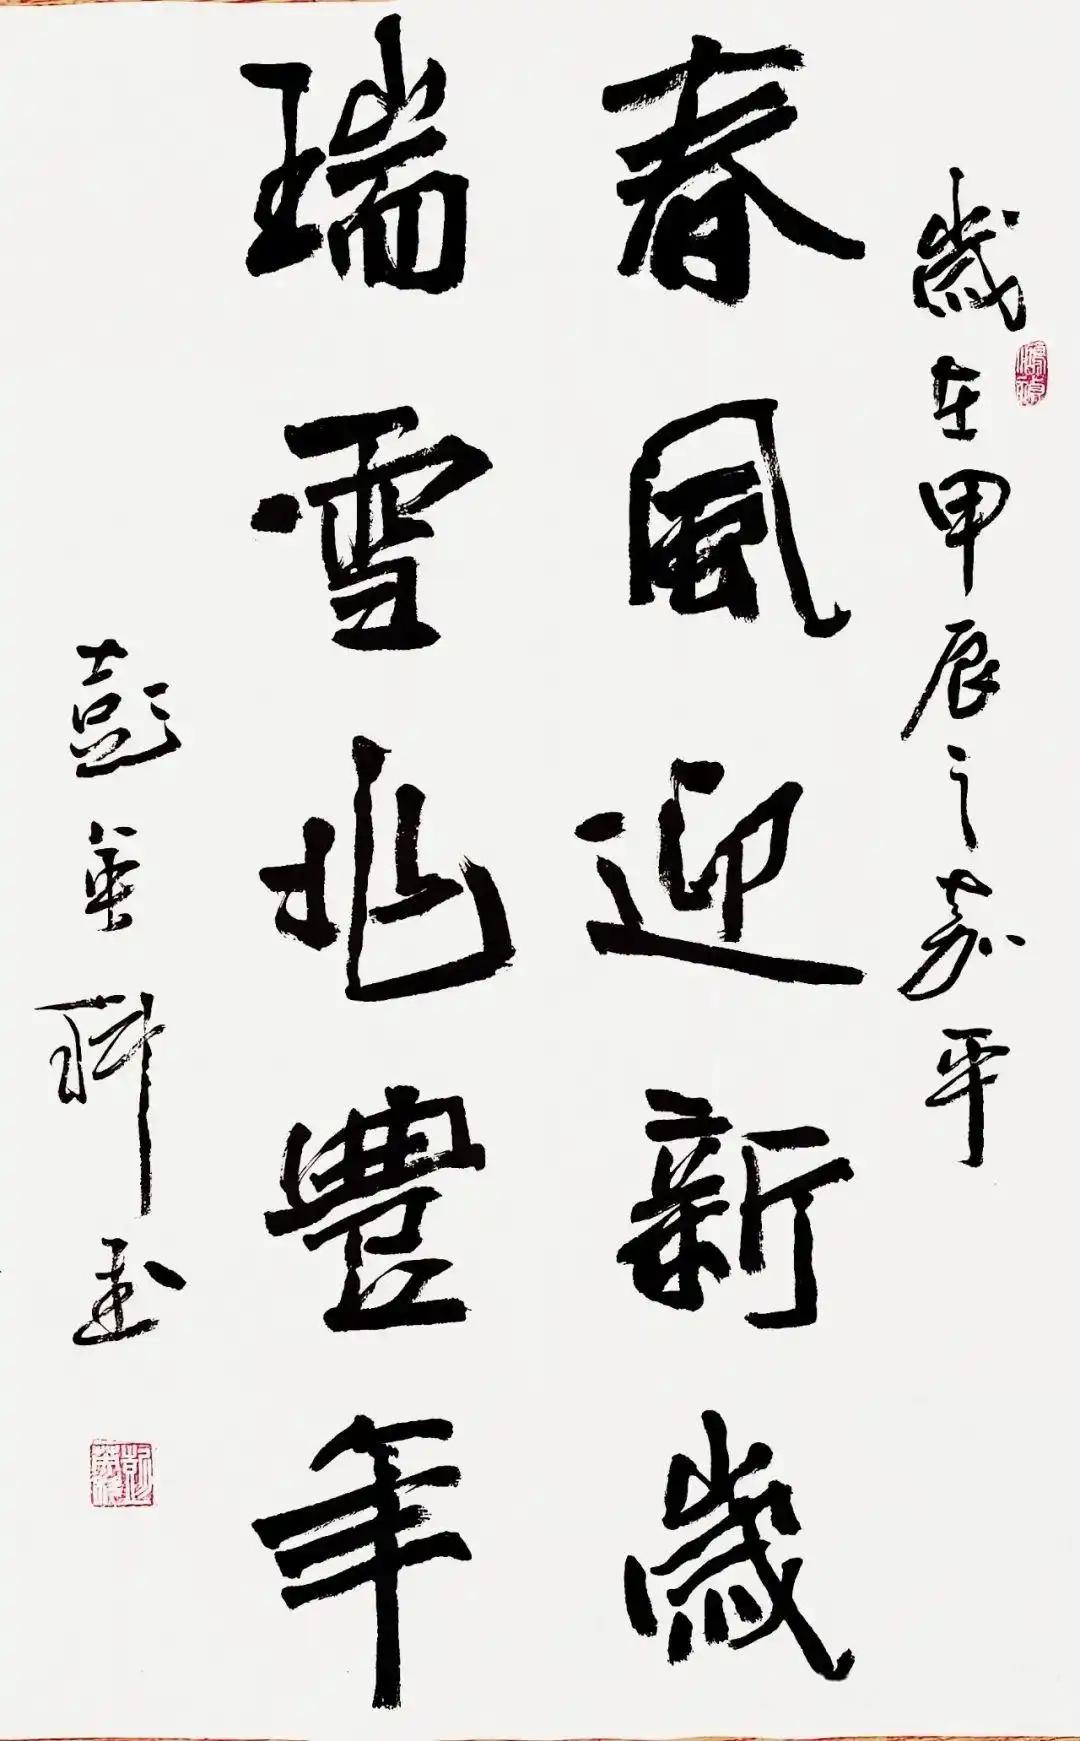 歲在甲辰之嘉平
春風迎新歲
瑞雪兆豐年
彭 科